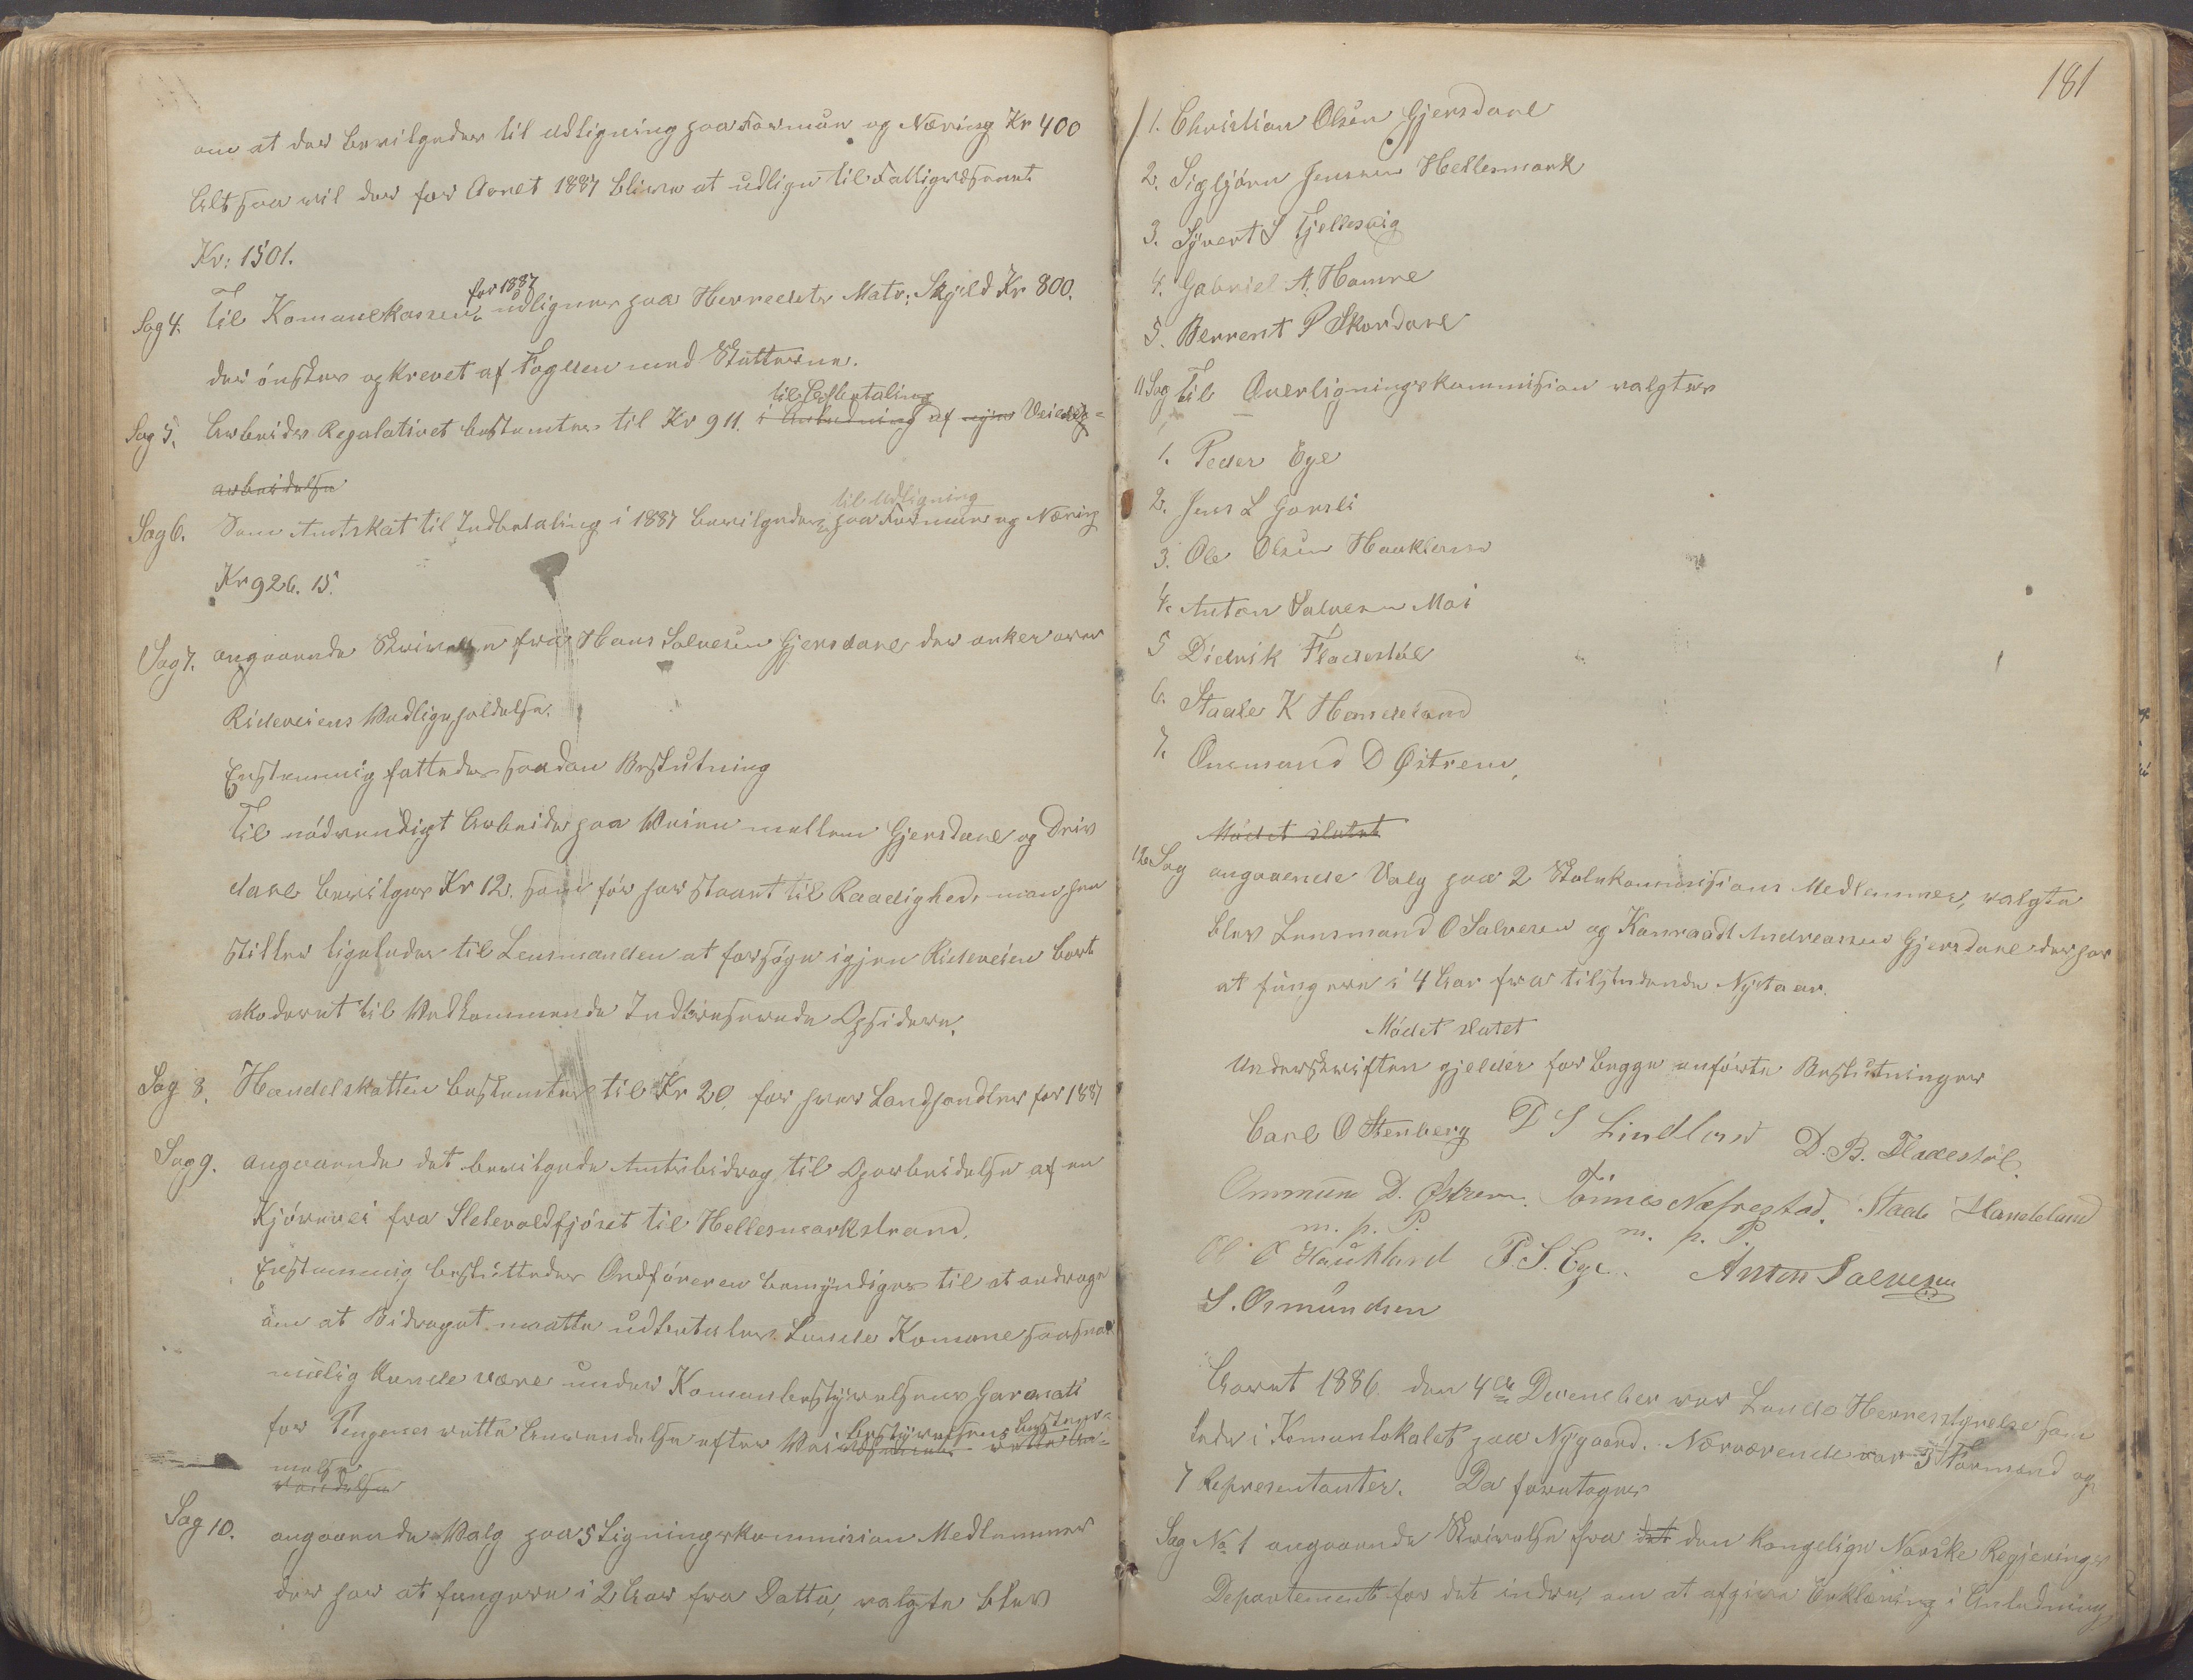 om at der bevilgedes til Udligning paa Formue og Næring Kr 400
Altsaa vil der for Aaret 1887 blive at udligne til Fattigvæsenet
Kr: 1501.
Sag 4. Til Komunekassen for 1887 udlignes paa Herredets Matr: Skyld Kr 800.
der ønskes og krevet af Fogden med Skatterne.
Sag 5. Arbeids Regulativet bestemtes til Kr 911. i Anledning til Afbetaling af nye Veies
arbeidelse
Sag 6. Som Amtskat til Indbetaling i 1887 bevilgedes til Udligning paa Formue og Næring
Kr 926. 15.
Sag 7. angaaende Skrivelse fra Hans Salvesen Gjersdal der anker over
Rideveiens Vedligeholdelse.
Enstemmig fattedes saadan Beslutning
Til nødvendigt Arbeide paa Veien mellem Gjersdal og Driv
dal bevilges Kr 12. som før har staaet til Raadighed, man hen
stiller ligeledes til Lensmanden at forsøge igjen Rideveien bort
akoderet til Vedkommende Inderesserede Opsidere.
Sag 8. Handelskatten bestemtes til Kr 20 for hver Landhandler for 1887
Sag 9. angaaende det bevilgede Amtsbidrag til Oparbeidelse af en
Kjørevei fra Sletevoldfjøret til Hellesmarkstrand.
Enstemmig besluttedes Ordføreren bemyndiges til at andrage
om at Bidraget maatte udbetales Lunde Komune saasnart
mulig kunde være under Komunebestyrelsens Garanti
for Pengenes rette Anvendelse efter Veibestyrelsens bestem-
melse
Sag 10. angaaende Valg paa 5 Ligningskommision Medlemmer
der har at fungere i 2 Aar fra Datto, valgte blev
181
1. Christian Olsen Gjersdal
2. Sigbjørn Jensen Hellesmark
3. Syvert S Tjellesvig
4. Gabriel A. Hamre
5. Berrent P Skordal
11 Sag Til Overligningskommission valgtes
1. Peder Ege
2. Jens L Gorsli
3. Ole Olsen Haukland
4. Anton Salvesen Moi
5 Didrik Fladestøl
6. Staale K Handeland
7. Onnmund D Østrem,
Mødet slutet
12 Sag angaaende Valg paa 2 Skolekommissions Medlemmer, valgte
blev Lensmand O Salvesen og Konraadt Andreassen Gjersdal der har
at fungere i 4 Aar fra tilstundende Nytaar.
Mødet slutet
Underskriften gjelder for begge anførte Beslutninger
Carl O Stenberg T S Lindland D. B. Fladestøl
Onmund D. Østrem. Tønnes Næsrestad. Staale Handeland
m. p. P. m. p. P.
Ole O Haukland P. S. Ege. Anton Salvesen
S. Osmundsen
Aaret 1886 den 4de December var Lunds Herresstyrelse sam
lede i Komunlokalet paa Nygaard. Nærværende var 3 Formænd og
7 Representanter. Da foretoges
Sag No 1 angaaende Skrivelse fra det den kongelige Norske Regjerings
Departement for det indre, om at afgive Erklæring i Anledning